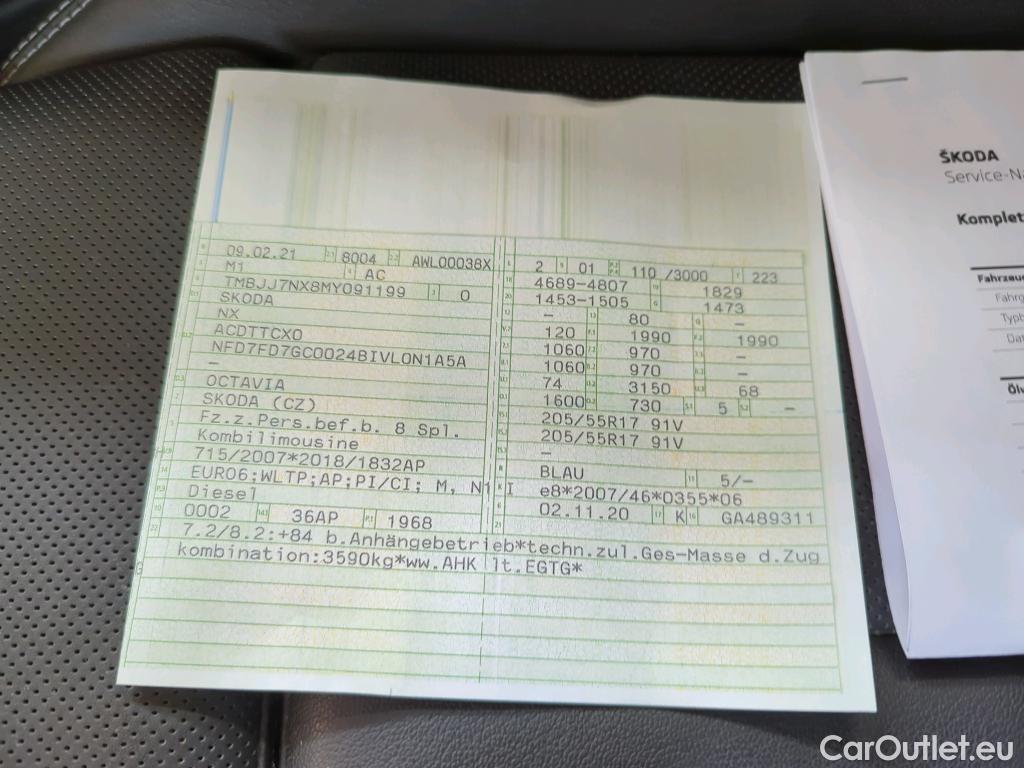 09.02.21 8004 AWL00038X
M1 AC
TMBJJ7NX8MY091199 0
SKODA
NX
ACDTTCX0
NFD7FD7GC0024BIVLON1A5A
–
OCTAVIA
SKODA (CZ)
Fz.z.Pers.bef.b. 8 Spl.
Kombilimousine
715/2007*2018/1832AP
EURO6;WLTP;AP;PI/CI; M, N1 I
Diesel
0002 36AP 1968
2 01 110 /3000 223
4689-4807 1829
1453-1505 1473
– 80 –
120 1990 1990
1060 970 –
1060 970 –
74 3150 68
1600 730 5 –
205/55R17 91V
205/55R17 91V
–
BLAU 5/–
e8*2007/46*0355*06
02.11.20 K GA489311
7.2/8.2:+84 b.Anhängebetrieb*techn.zul.Ges-Masse d.Zug
kombination:3590kg*ww.AHK lt.EGTG*
ŠKODA
Service-Na
Komplet
Fahrzeu
Fahrg
Typb
Dat
Ölv
CarOutlet.eu